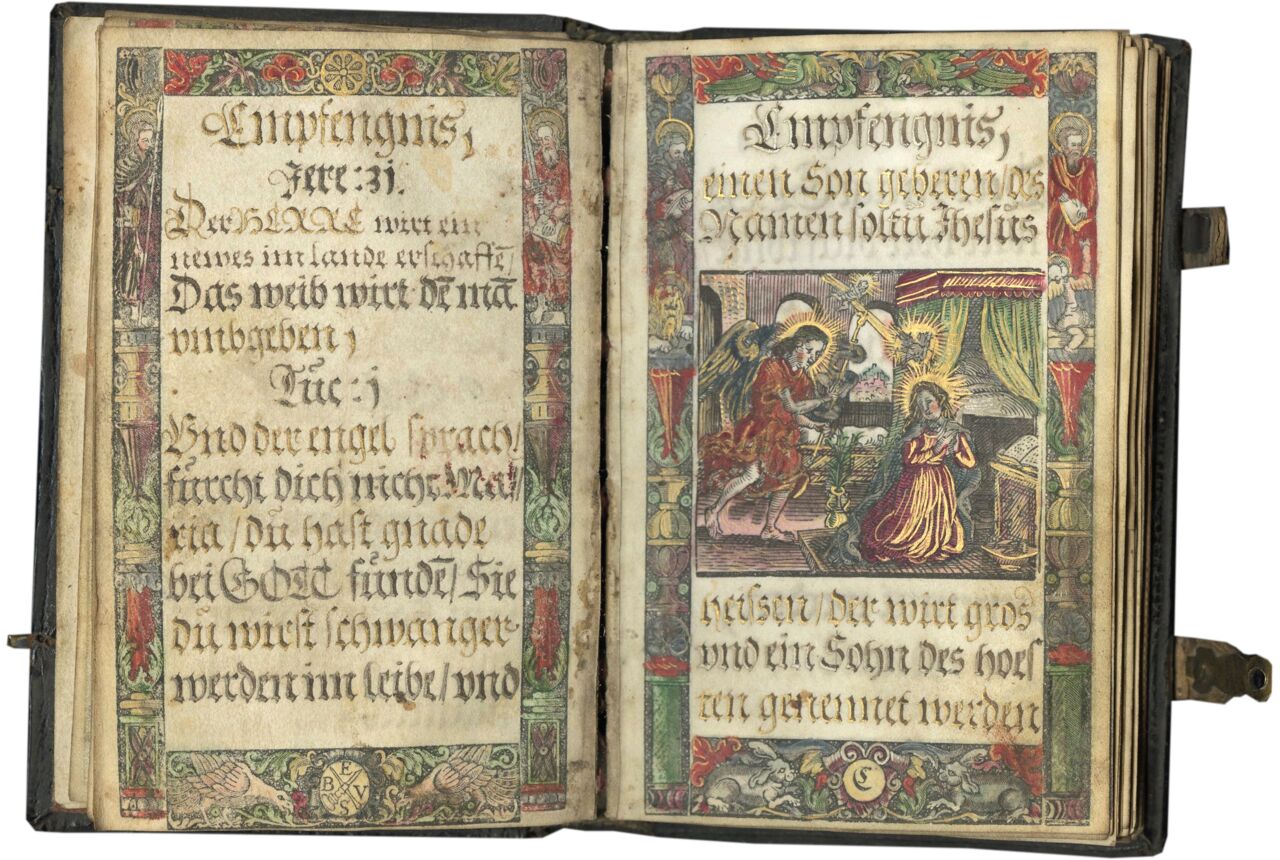 Empfengnis,
Jere: 31.
Der HERRE wirt ein
newes im lande erschaffē/
Das weib wirt dē mā
vmbgeben,
Luc: j
Vnd der engel sprach/
fürcht dich nicht Ma/
ria / du hast gnade
bei GOTT fundē/ Sie
du wirst schwanger
werden im leibe/ vnd
E
B V
S
Empfengnis,
einen Son geberen/ des
Namen soltu Jhesus
heissen/ der wirt gros
vnd ein Sohn des hoes
ten genennet werden
C